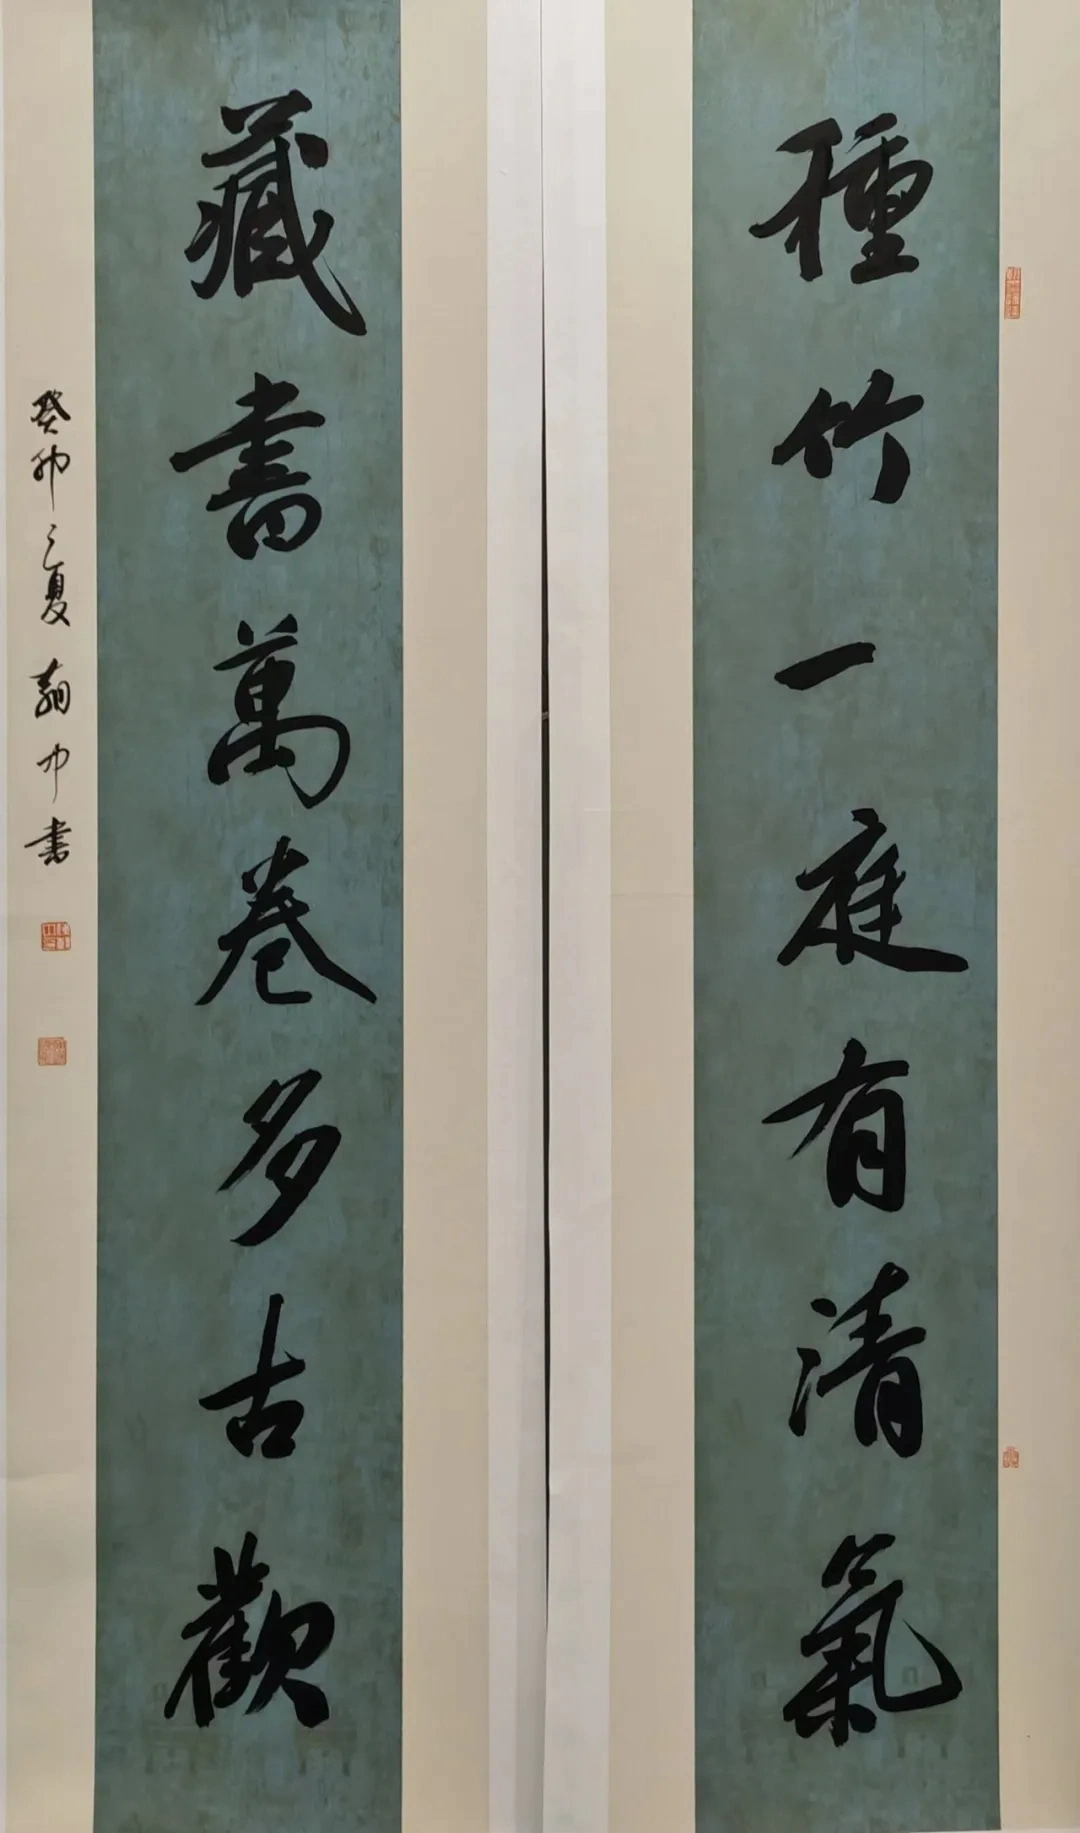 種竹一庭有清氣
藏書萬卷多古歡
癸卯之夏 書